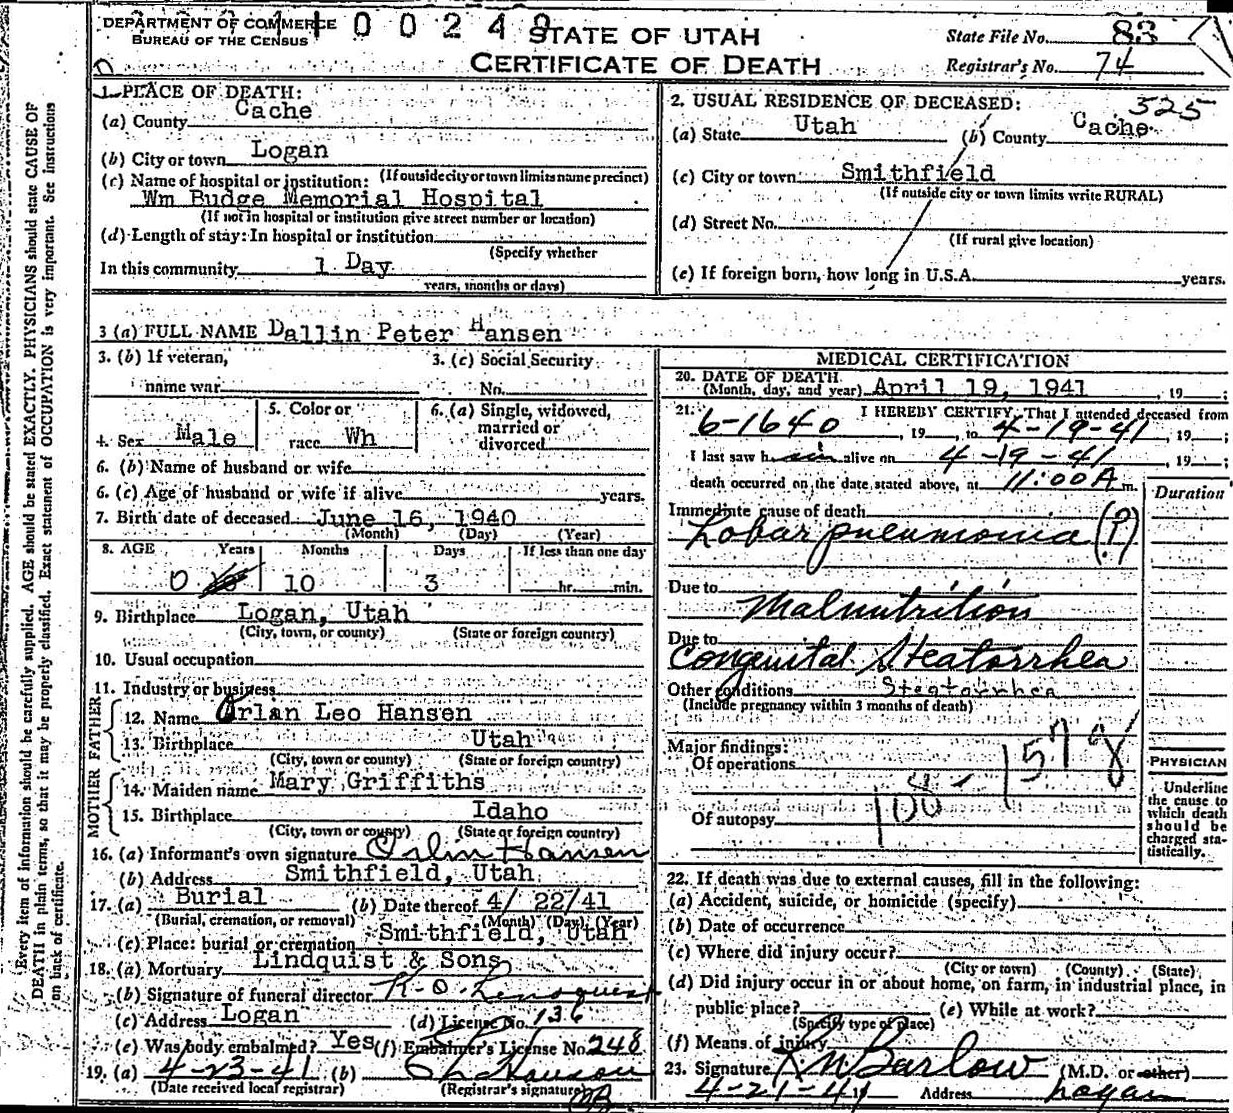 DEPARTMENT OF COMMERCE
BUREAU OF THE CENSUS
00249
STATE OF UTAH
CERTIFICATE OF DEATH
State File No. 83
Registrar's No. 74
1. PLACE OF DEATH:
(a) County Cache
(b) City or town Logan
(If outside city or town limits name precinct)
(c) Name of hospital or institution:
Wm Budge Memorial Hospital
(If not in hospital or institution give street number or location)
(d) Length of stay: In hospital or institution
(Specify whether
In this community 1 Day
years, months or days)
2. USUAL RESIDENCE OF DECEASED: 325
(a) State Utah (b) County Cache
(c) City or town Smithfield
(If outside city or town limits write RURAL)
(d) Street No.
(If rural give location)
(e) If foreign born, how long in U.S.A. years.
3 (a) FULL NAME Dallin Peter Hansen
3. (b) If veteran,
name war
3. (c) Social Security
No.
4. Sex Male
5. Color or
race Wh
6. (a) Single, widowed,
married or
divorced
6. (b) Name of husband or wife
6. (c) Age of husband or wife if alive years.
7. Birth date of deceased June 16, 1940
(Month) (Day) (Year)
8. AGE Years Months Days If less than one day
0 10 3 hr. min.
9. Birthplace Logan, Utah
(City, town, or county) (State or foreign country)
10. Usual occupation
11. Industry or business
FATHER
12. Name Orlan Leo Hansen
13. Birthplace Utah
(City, town or county) (State or foreign country)
MOTHER
14. Maiden name Mary Griffiths
15. Birthplace Idaho
(City, town or county) (State or foreign country)
16. (a) Informant's own signature Orlin Hansen
(b) Address Smithfield, Utah
17. (a) Burial (b) Date thereof 4/ 22/41
(Burial, cremation, or removal) (Month) (Day) (Year)
(c) Place: burial or cremation Smithfield, Utah
18. (a) Mortuary Lindquist & Sons
(b) Signature of funeral director K. O. Lindquist
(c) Address Logan (d) License No. 136
(e) Was body embalmed? Yes (f) Embalmer's License No. 248
19. (a) 4-23-41 (b)
(Date received local registrar) (Registrar's signature)
MEDICAL CERTIFICATION
20. DATE OF DEATH
(Month, day, and year) April 19, 1941 , 19 ;
21. I HEREBY CERTIFY, That I attended deceased from
6-1640 , 19 , to 4-19-41 , 19 ;
I last saw him alive on 4-19-41 , 19 ;
death occurred on the date stated above, at 11:00 A m.
Duration
Immediate cause of death
Lobar pneumonia (?)
Due to
Malnutrition
Due to
Congenital Steatorrhea
Other conditions Steatorrhea
(Include pregnancy within 3 months of death)
Major findings:
Of operations
Of autopsy
108 - 1578
PHYSICIAN
Underline
the cause to
which death
should be
charged sta-
tistically.
22. If death was due to external causes, fill in the following:
(a) Accident, suicide, or homicide (specify)
(b) Date of occurrence
(c) Where did injury occur?
(City or town) (County) (State)
(d) Did injury occur in or about home, on farm, in industrial place, in
public place? (e) While at work?
(Specify type of place)
(f) Means of injury
23. Signature Barlow (M.D. or other)
4-21-41 Address Logan
Every item of information should be carefully supplied. AGE should be stated EXACTLY. PHYSICIANS should state CAUSE OF
DEATH in plain terms, so that it may be properly classified. Exact statement of OCCUPATION is very important. See instructions
on back of certificate.